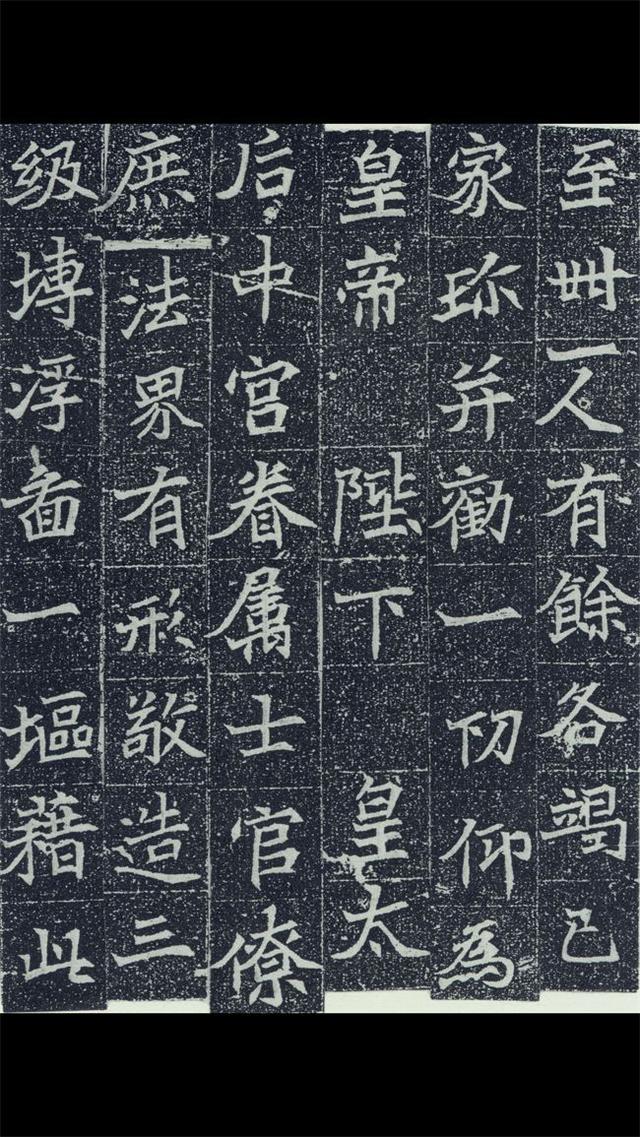 至卌一人有餘各竭己
家珎并勸一切仰為
皇帝　陛下　皇太
后中宮眷属士官僚
庶法界有形敬造三
级塼浮啚一塸藉此